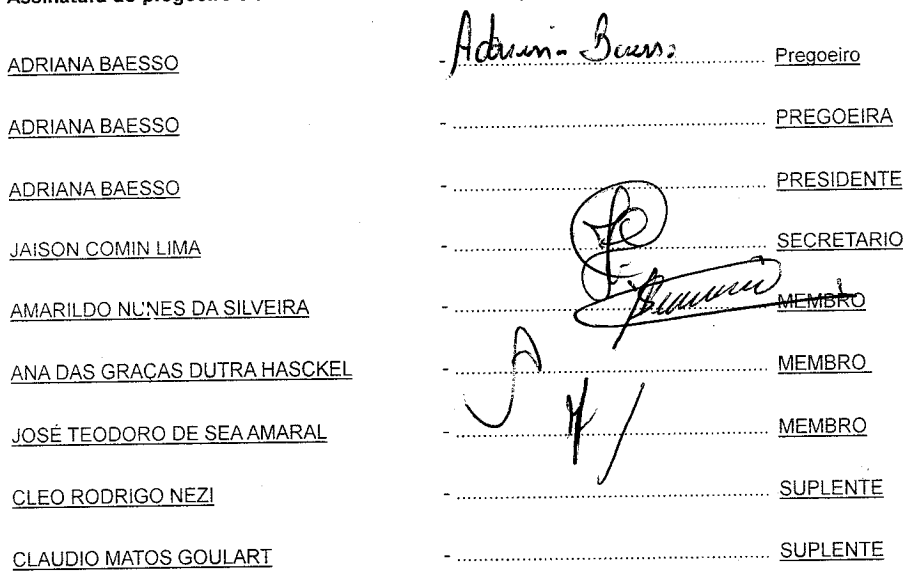 Assinatura do pregoeiro e
ADRIANA BAESSO - Adriana Baesso Pregoeiro
ADRIANA BAESSO - PREGOEIRA
ADRIANA BAESSO - PRESIDENTE
JAISON COMIN LIMA - SECRETARIO
AMARILDO NUNES DA SILVEIRA - MEMBRO
ANA DAS GRAÇAS DUTRA HASCKEL - MEMBRO
JOSÉ TEODORO DE SEA AMARAL - MEMBRO
CLEO RODRIGO NEZI - SUPLENTE
CLAUDIO MATOS GOULART - SUPLENTE